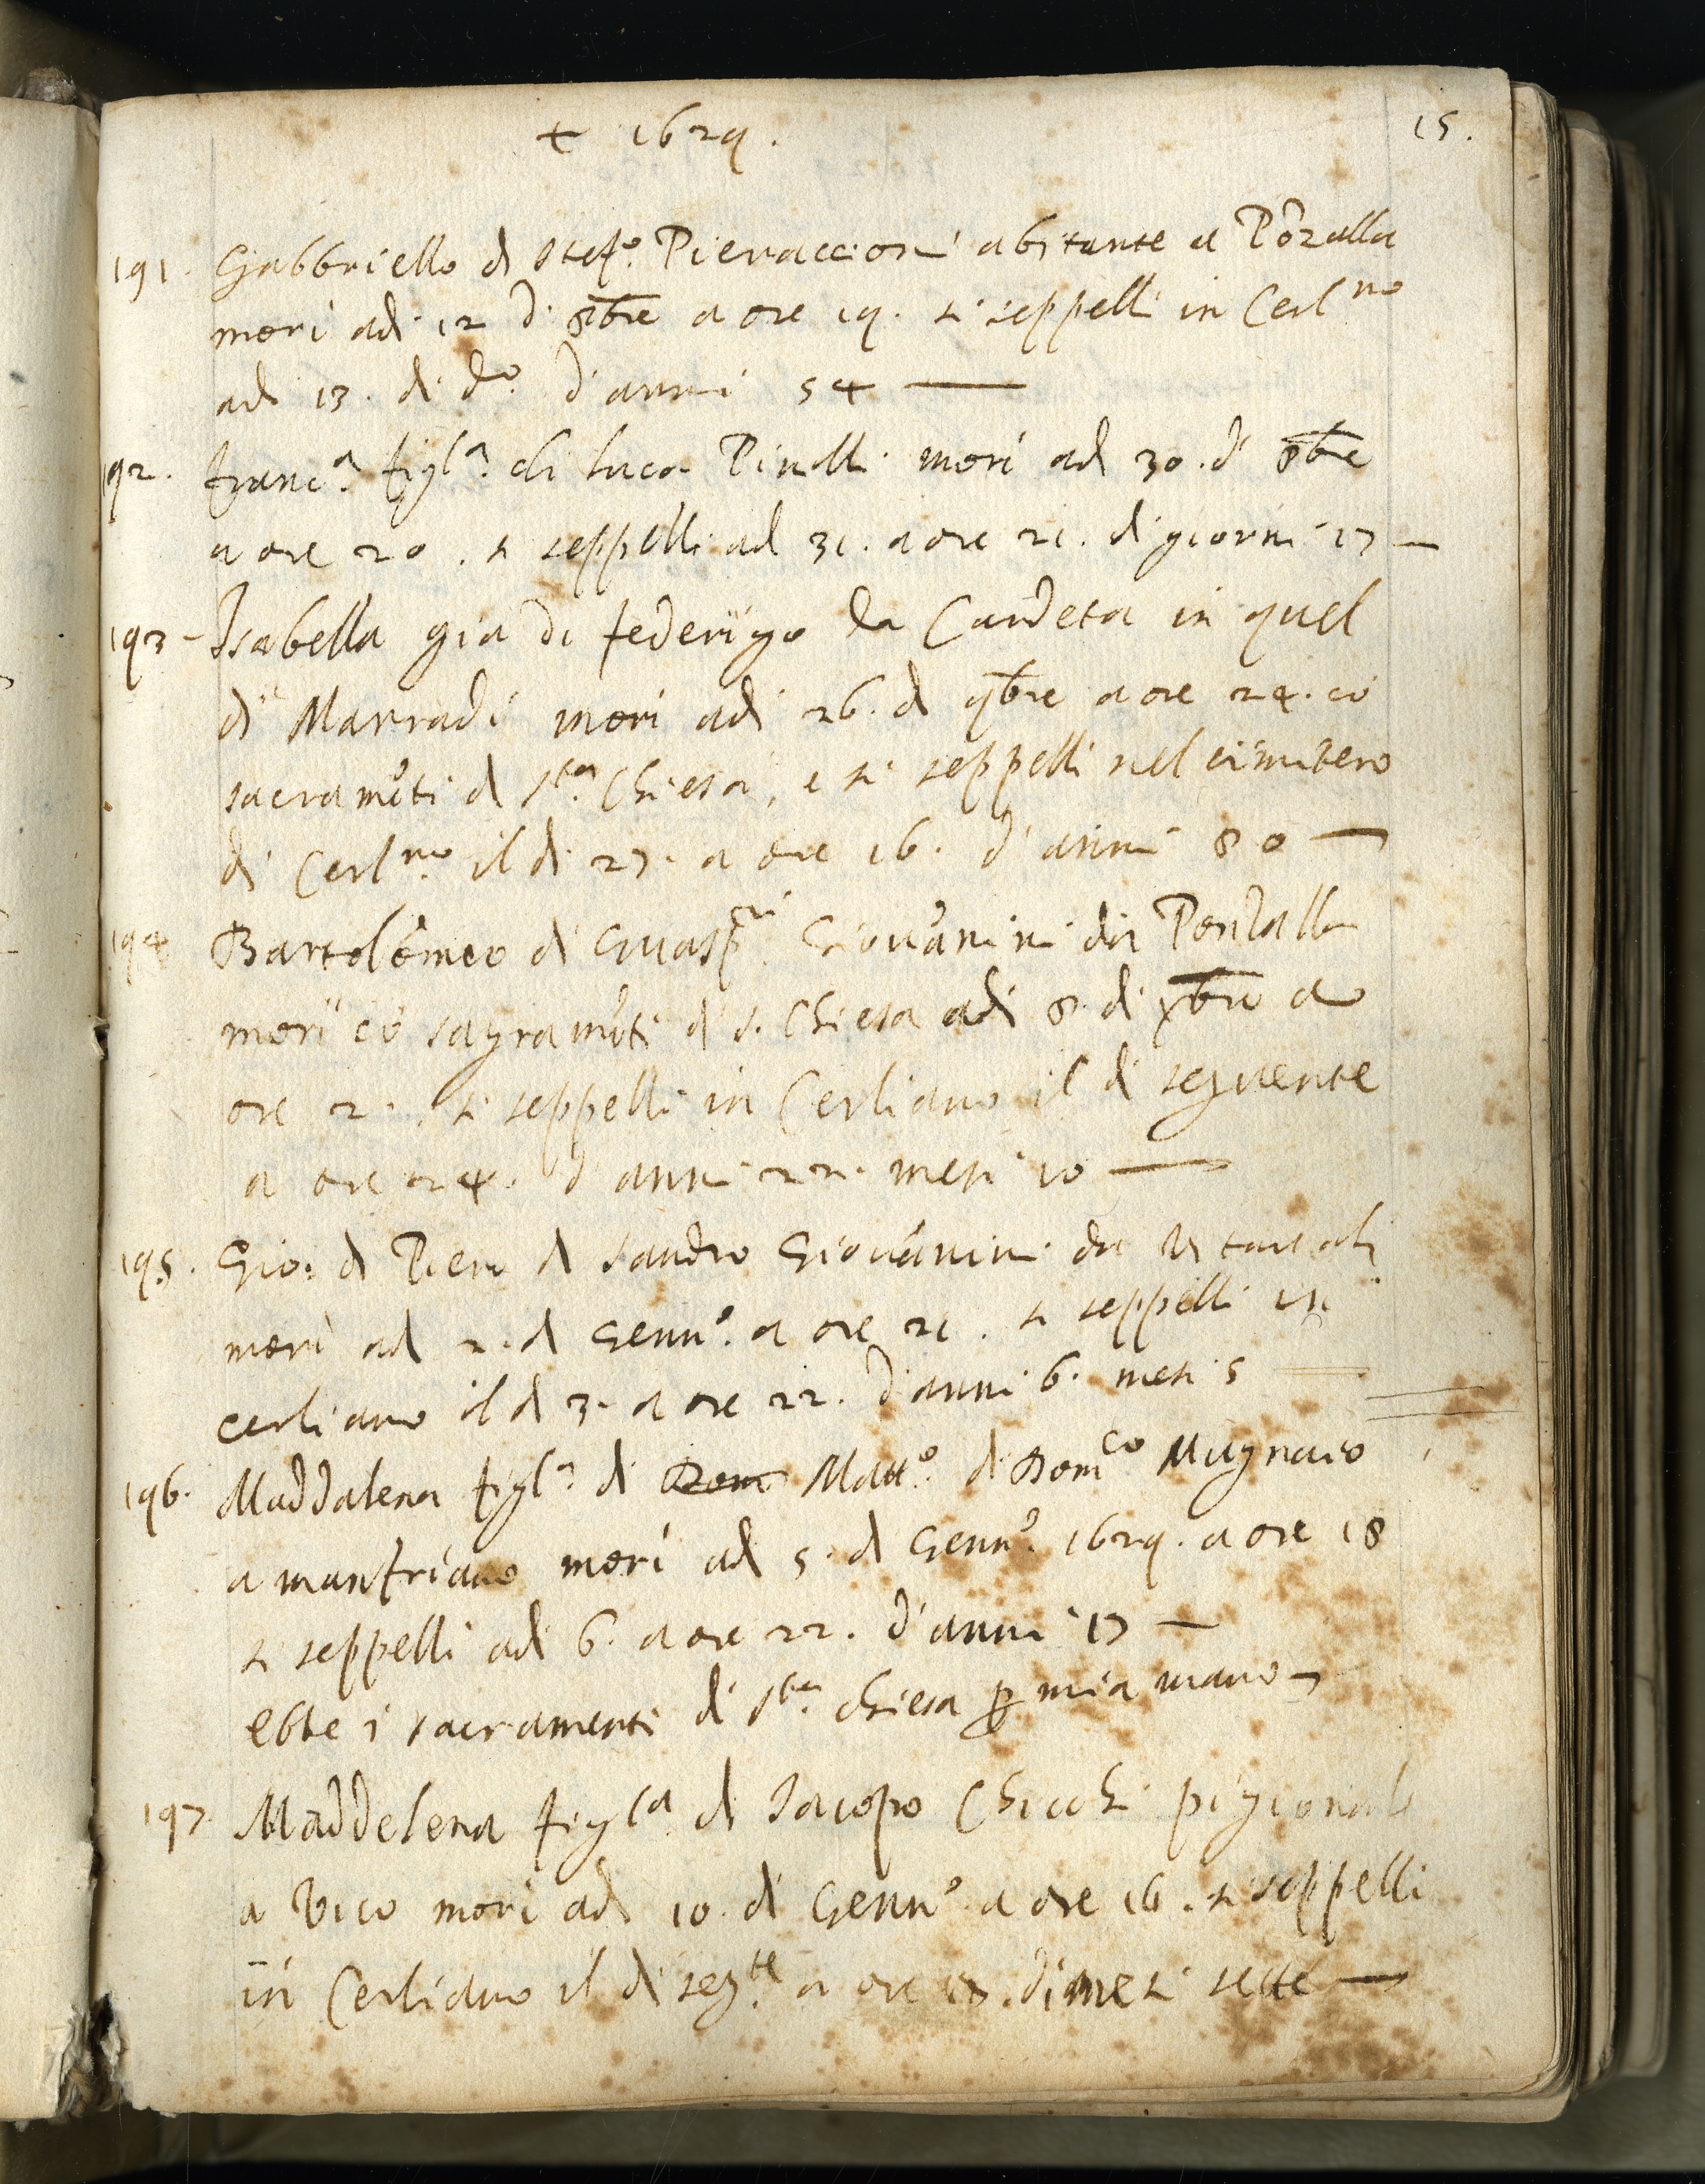 + 1629. 15.
191. Gabbriello di Stef.o Pieraccioni abitante a Põzalla
mori adi 12 di 8bre a ore 19. si seppelli in Cerl.no
adi 13. di d.o d'anni 54 —
192. franc.a figl.a di luca Pinelli mori adi 30. di 8bre
a ore 20. si seppelli adi 31. a ore 21. di giorni 17 —
193 - Isabella gia di federigo da Cardeta in quel
di Marradi mori adi 26. di 9bre a ore 24. cõ
sacramẽti di s.ta Chiesa, e si seppelli nel cimitero
di Cerl.no il di 27. a ore 16. d'anni 80 —
194 Bartolomeo di Guasp.ri Giovãnini da Ponzalla
mori cõ sagramẽti di s. Chiesa adi 8. di xbre a
ore 2. si seppelli in Cerliano il di seguente
a ore 24. d'anni 22. mesi 10 —
195. Gio: di Piero di Sandro Giovãnini da
mori adi 2. di Genn.o a ore 21. si seppelli in
cerliano il di 3. a ore 22. d'anni 6. mesi 5
196. Maddalena figl.a di Dom Matt.o di Dom.co Mugnaio
a manfriano mori adi 5. di Genn.o 1629. a ore 18
si seppelli adi 6. a ore 22. d'anni 17 —
ebbe i sacramenti di s.ta chiesa p mia mano
197 Maddelena figl.a di Iacopo Chicchi pigionale
a Vico mori adi 10. di Genn.o a ore 16. si seppelli
in Cerliano il di seg.te a ore di mesi sette —